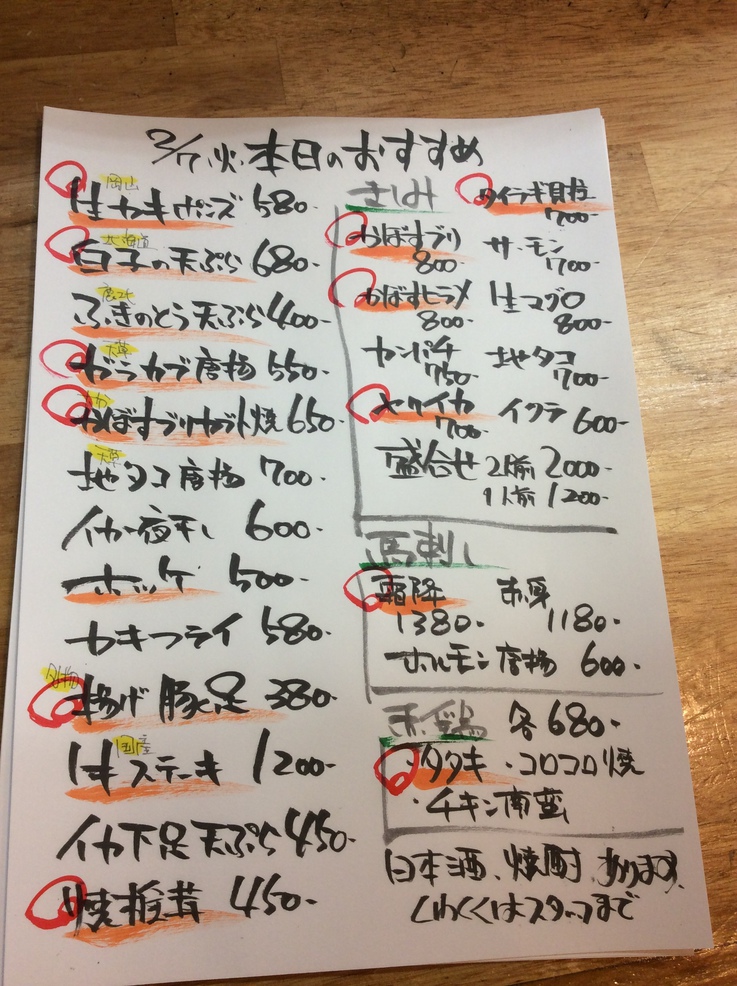 2/7火 本日のおすすめ
岡山
生カキポンズ 580-
北海道
白子の天ぷら 680-
ふきのとう天ぷら 400-
天草
ガラカブ唐揚 550-
かぼすブリカブト焼 650-
天草
地タコ唐揚 700-
イカ一夜干し 600-
ホッケ 500-
カキフライ 580-
名物
揚げ豚足 380-
国産
牛ステーキ 1200-
イカ下足天ぷら 450-
焼椎茸 450-
さしみ
タイラギ貝柱
700-
かぼすブリ
800-
サーモン
700-
かぼすヒラメ
800-
生マグロ
800-
カンパチ
750-
地タコ
700-
ヤリイカ
700-
イクラ 600-
盛合せ 2人前 2000-
1人前 1200-
馬刺し
霜降
1380-
赤身
1180-
ホルモン唐揚 600-
赤鶏 各680-
・タタキ ・コロコロ焼
・チキン南蛮
日本酒、焼酎、あります
くわしくはスタッフまで